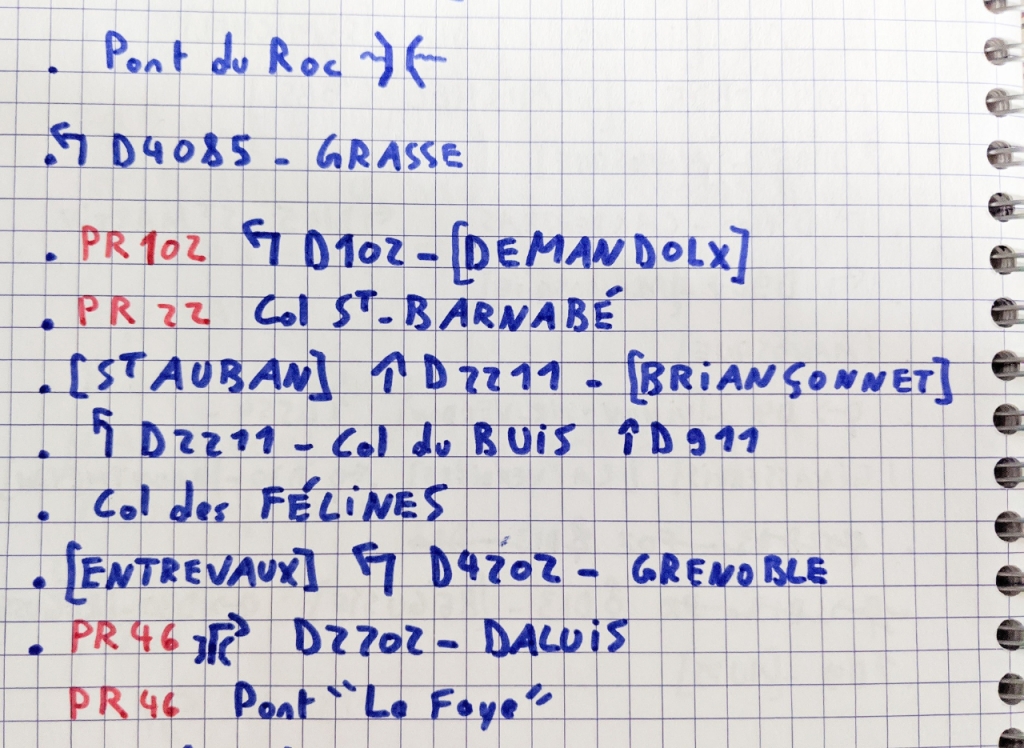 . Pont du Roc
. ↰ D4085 - GRASSE
. PR102 ↰ D102 - [DEMANDOLX]
. PR 22 Col ST-BARNABÉ
. [ST AUBAN] ↑ D2211 - [BRIANÇONNET]
. ↰ D2211 - Col du BUIS ↑ D911
. Col des FÉLINES
. [ENTREVAUX] ↰ D4202 - GRENOBLE
. PR 46 D2202 - DALUIS
PR 46 Pont "La Faye"